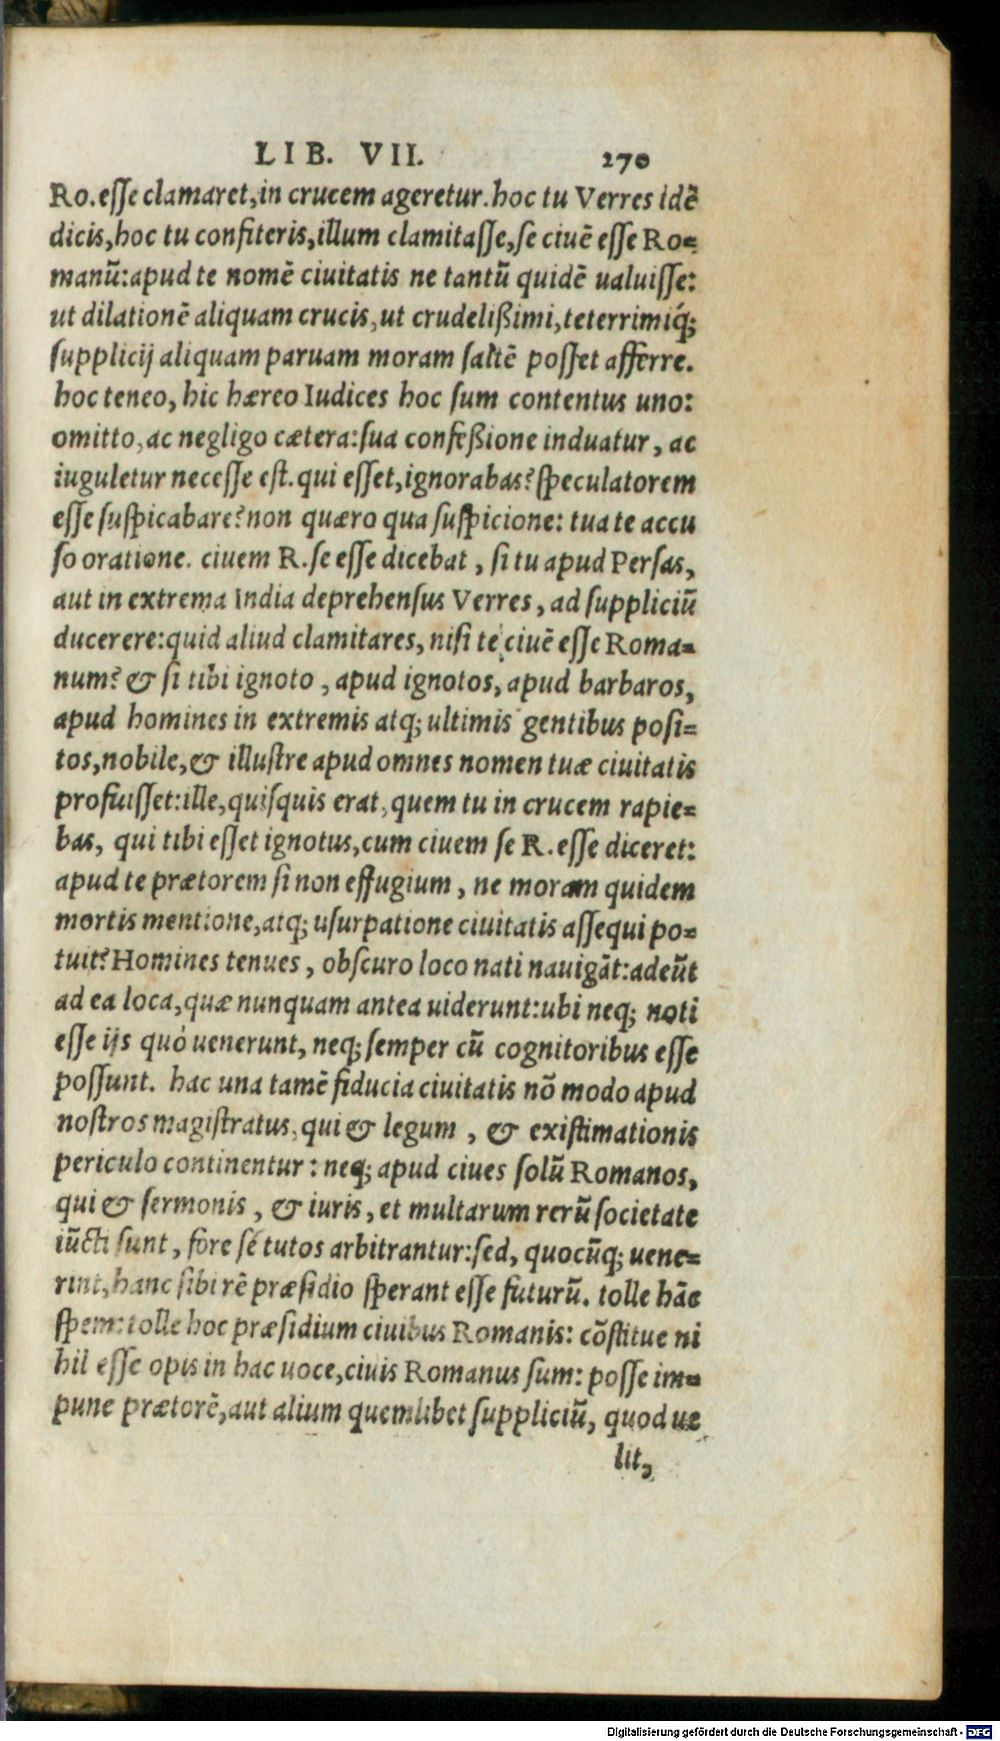 LIB. VII. 270
Ro. esse clamaret, in crucem ageretur. hoc tu Verres idẽ
dicis, hoc tu confiteris, illum clamitasse, se ciuẽ esse Ro-
manũ: apud te nomẽ ciuitatis ne tantũ quidẽ ualuisse:
ut dilationẽ aliquam crucis, ut crudelißimi, teterrimiq́;
supplicij aliquam paruam moram saltẽ posset afferre.
hoc teneo, hic hæreo Iudices hoc sum contentus uno:
omitto, ac negligo cætera: sua confeßione induatur, ac
iuguletur necesse est. qui esset, ignorabas? speculatorem
esse suspicabare? non quæro qua suspicione: tua te accu
so oratione. ciuem R. se esse dicebat, si tu apud Persas,
aut in extrema India deprehensus Verres, ad suppliciũ
ducerere: quid aliud clamitares, nisi te ciuẽ esse Roma-
num? & si tibi ignoto, apud ignotos, apud barbaros,
apud homines in extremis atq; ultimis gentibus posi-
tos, nobile, & illustre apud omnes nomen tuæ ciuitatis
profuisset: ille, quisquis erat, quem tu in crucem rapie-
bas, qui tibi esset ignotus, cum ciuem se R. esse diceret:
apud te prætorem si non effugium, ne moram quidem
mortis mentione, atq; usurpatione ciuitatis assequi po-
tuit? Homines tenues, obscuro loco nati nauigãt: adeũt
ad ea loca, quæ nunquam antea uiderunt: ubi neq; noti
esse ijs quò uenerunt, neq; semper cũ cognitoribus esse
possunt. hac una tamẽ fiducia ciuitatis nõ modo apud
nostros magistratus, qui & legum, & existimationis
periculo continentur: neq; apud ciues solũ Romanos,
qui & sermonis, & iuris, et multarum rerũ societate
iũcti sunt, fore sé tutos arbitrantur: sed, quocũq; uene-
rint, hanc sibi rẽ præsidio sperant esse futurũ. tolle hãc
spem: tolle hoc præsidium ciuibus Romanis: cõstitue ni
hil esse opis in hac uoce, ciuis Romanus sum: posse im-
pune prætorẽ, aut alium quemlibet suppliciũ, quod ue
lit,
Digitalisierung gefördert durch die Deutsche Forschungsgemeinschaft - DFG